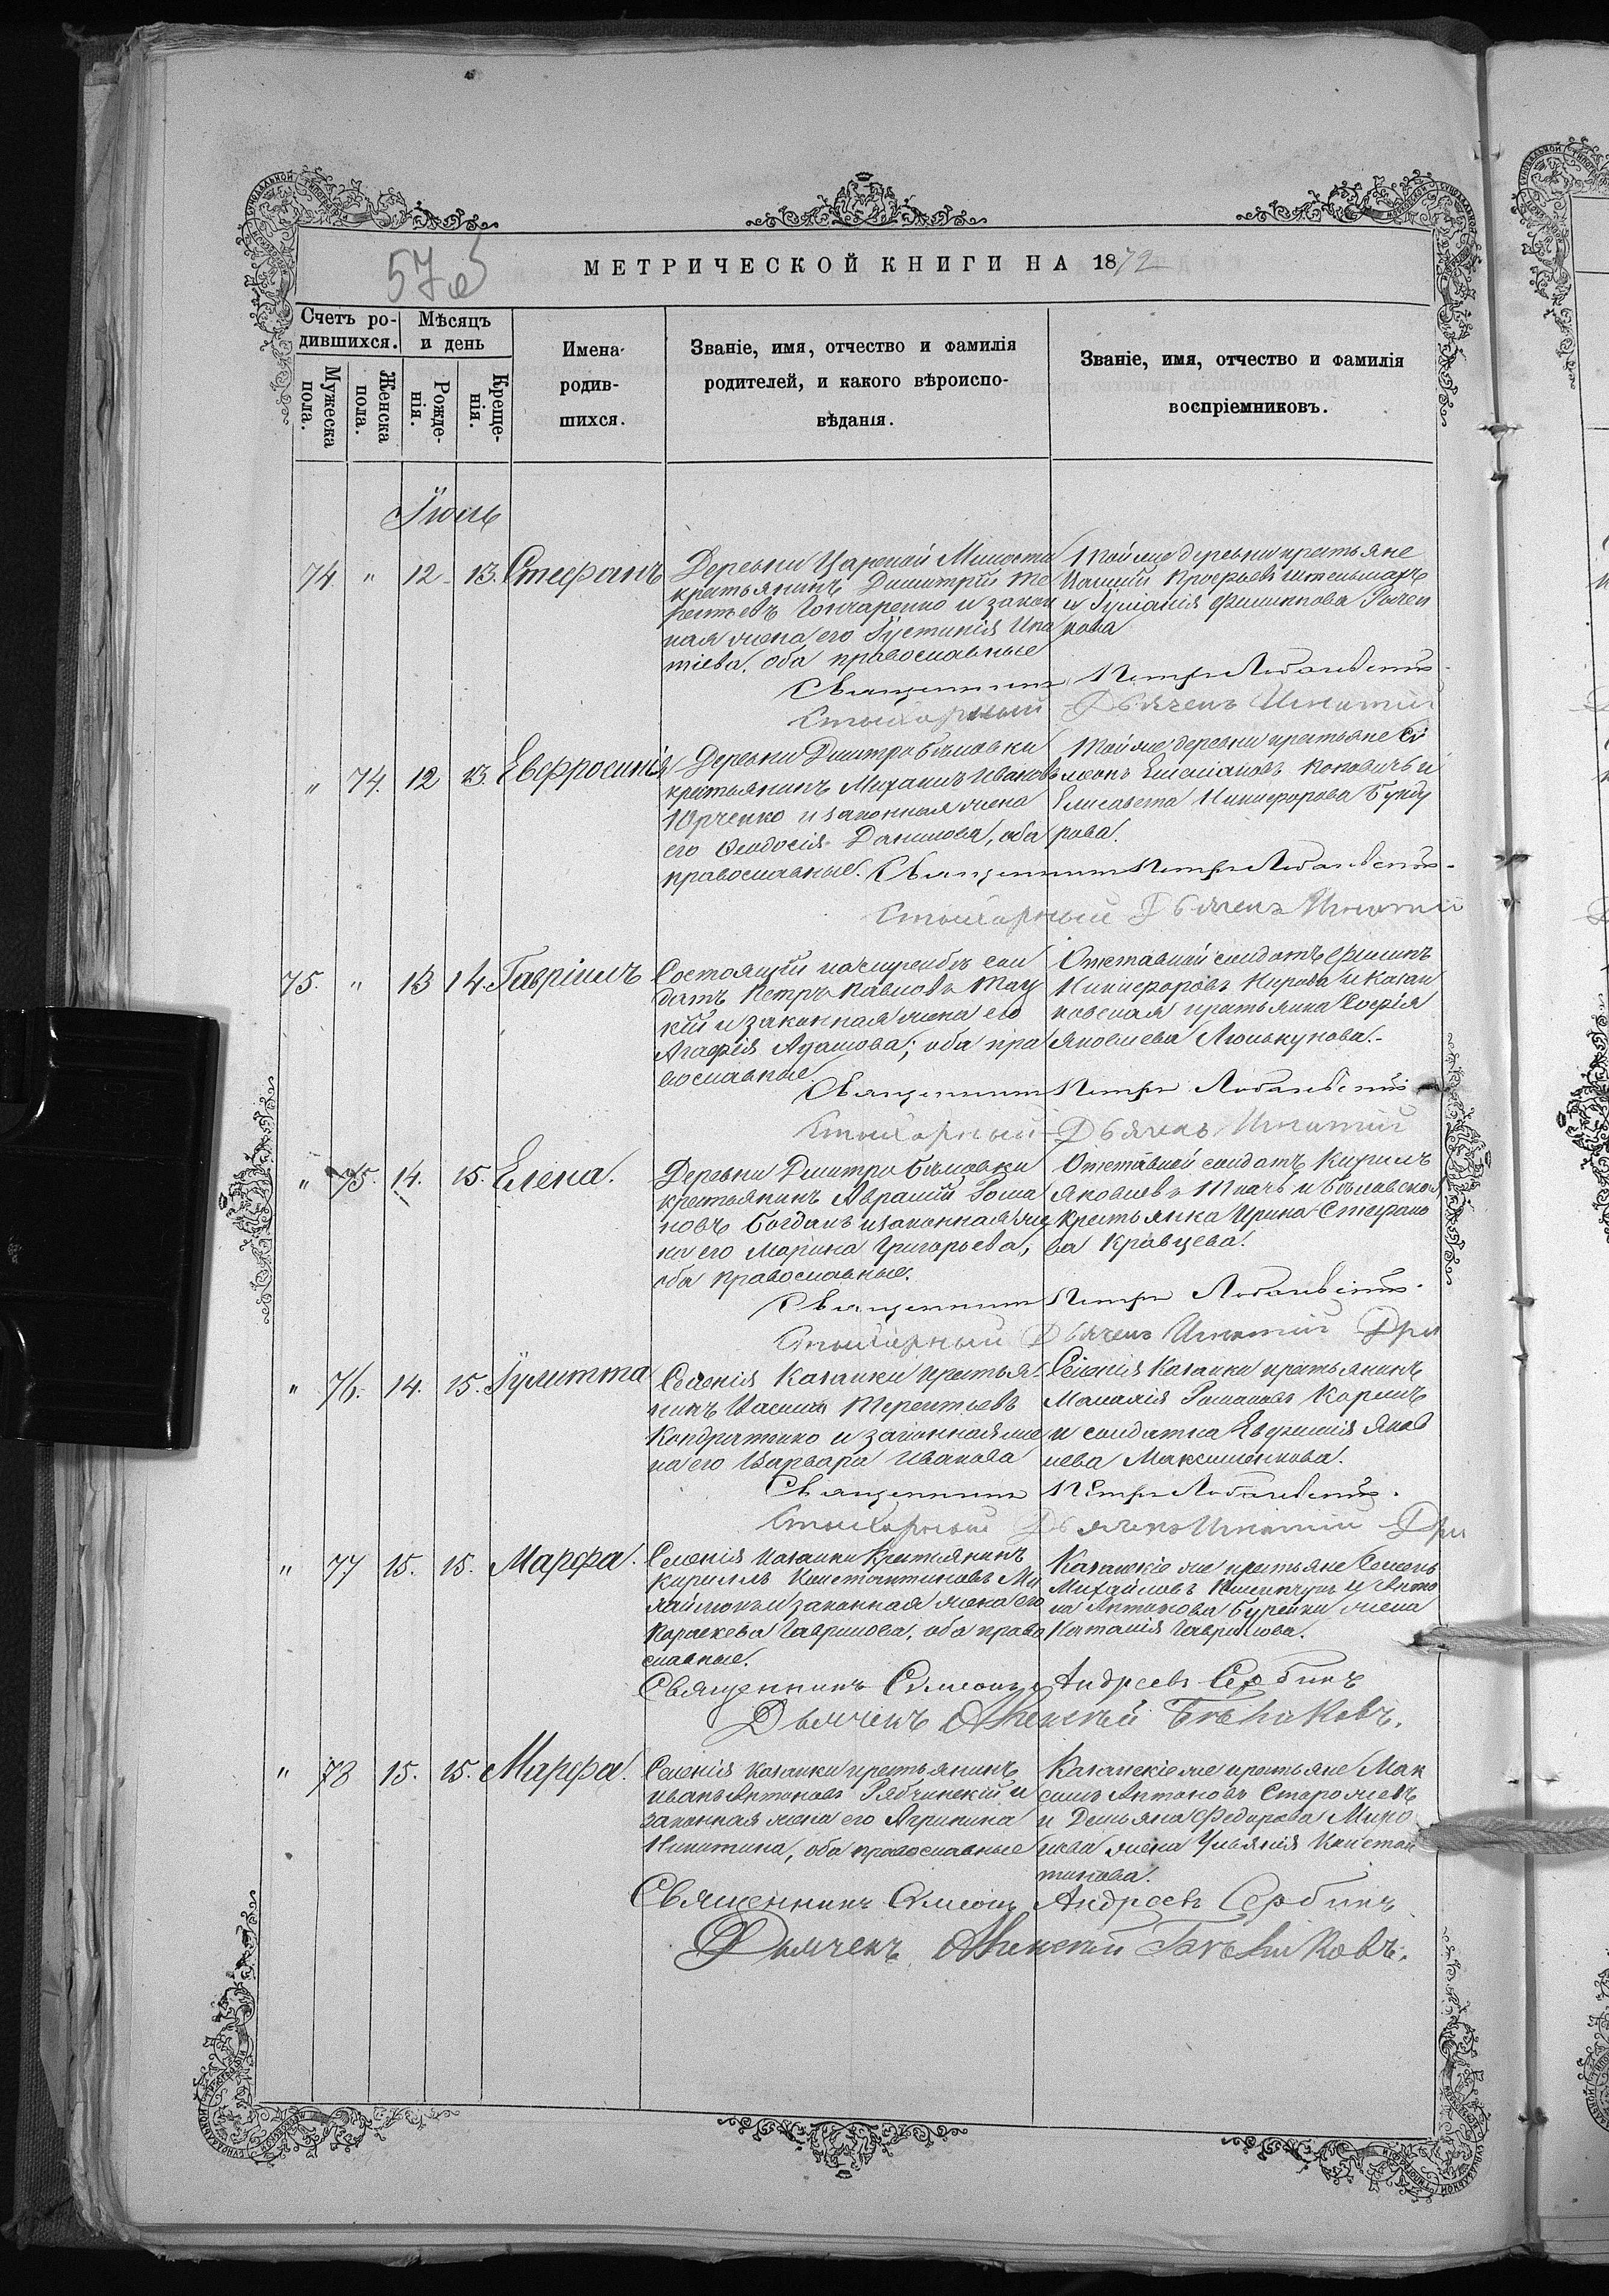 57об
МЕТРИЧЕСКОЙ КНИГИ НА 1872
Счетъ ро-
дившихся.
Мѣсяцъ
и день
Мужеска
пола.
Женска
пола.
Рожде-
нія.
Креще-
нія.
Имена
родив-
шихся.
Званіе, имя, отчество и фамилія
родителей, и какого вѣроиспо-
вѣданія.
Званіе, имя, отчество и фамилія
воспріемниковъ.
Іюль
74. " 12. 13. Стефанъ
Деревни Царской Милости
крестьянинъ Димитрій Те
рентьевъ Гончаренко и закон
ная жена его Іустинія Игна
тіева, оба православные
Той же деревни крестьяне
и Іуліанія Филиппова
Священникъ Петръ
Стихарный Дьячекъ Игнатій
" 74. 12 13. Евфросинія
Деревни Дмитробиловки
крестьянинъ Михаилъ Ивановъ
Юрченко и законная жена
его Феодосія Данилова, оба
православные.
Той же деревни крестьяне Си
меонъ Емеліановъ и
Елисавета Никифорова Бунду
рова.
Священникъ Петръ
Стихарный Дьячекъ Игнатій
75. " 13 14. Гавріилъ
Состоящій на службѣ сол
датъ Петръ Павловъ Тау
кій и законная жена его
Агафія Адамова; оба пра
вославные
Отставной солдатъ Филипъ
Никифоровъ Кирова и Казан
ковская крестьянка Софія
Яковлева Люлькунова.
Священникъ Петръ
Стихарный Дьячекъ Игнатій
" 75. 14. 15. Елена.
Деревни Дмитробиловки
крестьянинъ Аврамій Рома
новъ Богданъ и законная же
на его Марина Григорьева,
оба православные.
Отставной солдатъ Кирилъ
Яковлевъ Ткачъ и
крестьянка Ирина Стефано
ва Кравцева.
Священникъ Петръ
Стихарный Дьячекъ Игнатій
" 76. 14. 15. Іулитта
Селенія Казанки крестья-
нинъ Терентьевъ
Кондратенко и законная же
на его Варвара Иванова
Селенія Казанки крестьянинъ
Романовъ
и солдатка Евфимія Яков
лева Максименкова.
Священникъ Петръ
Стихарный Дьячекъ Игнатій
" 77 15. 15. Марфа.
Селенія Казанки Крестьянинъ
Кириллъ Константиновъ Ми
хайлюкъ и законная жена его
Параскева Гаврилова, оба право
славные.
Казанскіе же крестьяне Семенъ
Михайловъ и Анто
на Антонова Бурейки жена
Наталія Гаврилова.
Священникъ Симеонъ Андреевъ Сербинъ
Дьячекъ Алексѣй
" 78 15. 15. Марфа.
Селенія Казанки крестьянинъ
Иванъ Антоновъ Рябчинскій и
законная жена его Агрипина
Никитина, оба православные
Казанскіе же крестьяне Мак
симъ Антоновъ
и Демьяна Федорова Миро
нова жена Ульянія Констан
тинова.
Священникъ Симеонъ Андреевъ Сербинъ
Дьячекъ Алексѣй